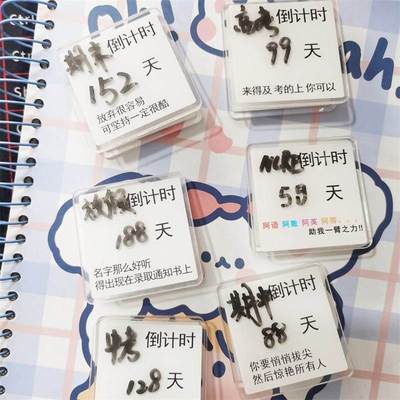 期末倒计时
152天
放弃很容易
可坚持一定很酷
高考倒计时
99天
来得及 考的上 你可以
放假倒计时
188天
名字那么好听
得出现在录取通知书上
倒计时
59天
阿语 阿数 阿英 阿等...
助我一臂之力!!
中考倒计时
128天
期中倒计时
88天
你要悄悄拔尖
然后惊艳所有人